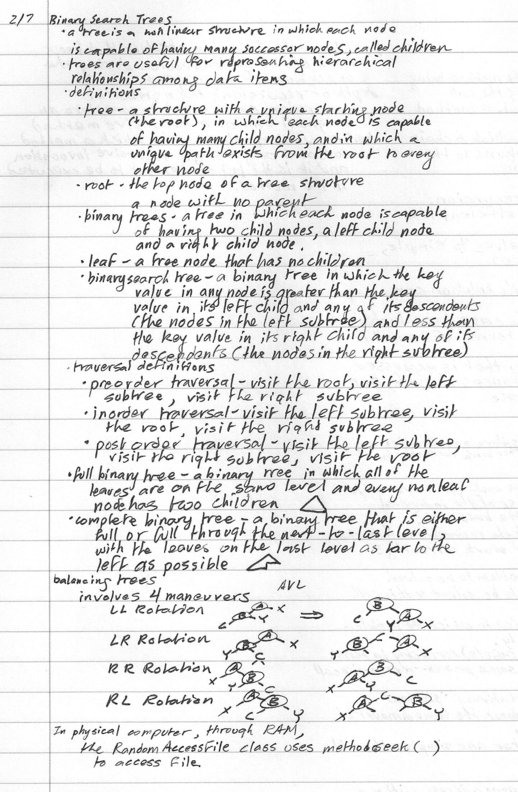 2/7 Binary Search Trees
• a tree is a nonlinear structure in which each node
is capable of having many successor nodes, called children
• trees are useful for representing hierarchical
relationships among data items
• definitions
• tree - a structure with a unique starting node
(the root), in which each node is capable
of having many child nodes, and in which a
unique path exists from the root to every
other node
• root - the top node of a tree structure
a node with no parent
• binary trees - a tree in which each node is capable
of having two child nodes, a left child node
and a right child node.
• leaf - a tree node that has no children
• binary search tree - a binary tree in which the key
value in any node is greater than the key
value in its left child and any of its descendents
(the nodes in the left subtree) and less than
the key value in its right child and any of its
descendents (the nodes in the right subtree)
• traversal definitions
• preorder traversal - visit the root, visit the left
subtree, visit the right subtree
• inorder traversal - visit the left subtree, visit
the root, visit the right subtree
• post order traversal - visit the left subtree,
visit the right subtree, visit the root
• full binary tree - a binary tree in which all of the
leaves are on the same level and every nonleaf
node has two children
• complete binary tree - a binary tree that is either
full or full through the next-to-last level,
with the leaves on the last level as far to the
left as possible
balancing trees AVL
involves 4 maneuvers
LL Rotation B A X C Y ⇒ B C A Y X
LR Rotation B A X Y C B C A Y X
RR Rotation A X B Y C A B C X Y
RL Rotation A X B C Y A C B X Y
In physical computer, through RAM,
the RandomAccessFile class uses method seek ( )
to access file